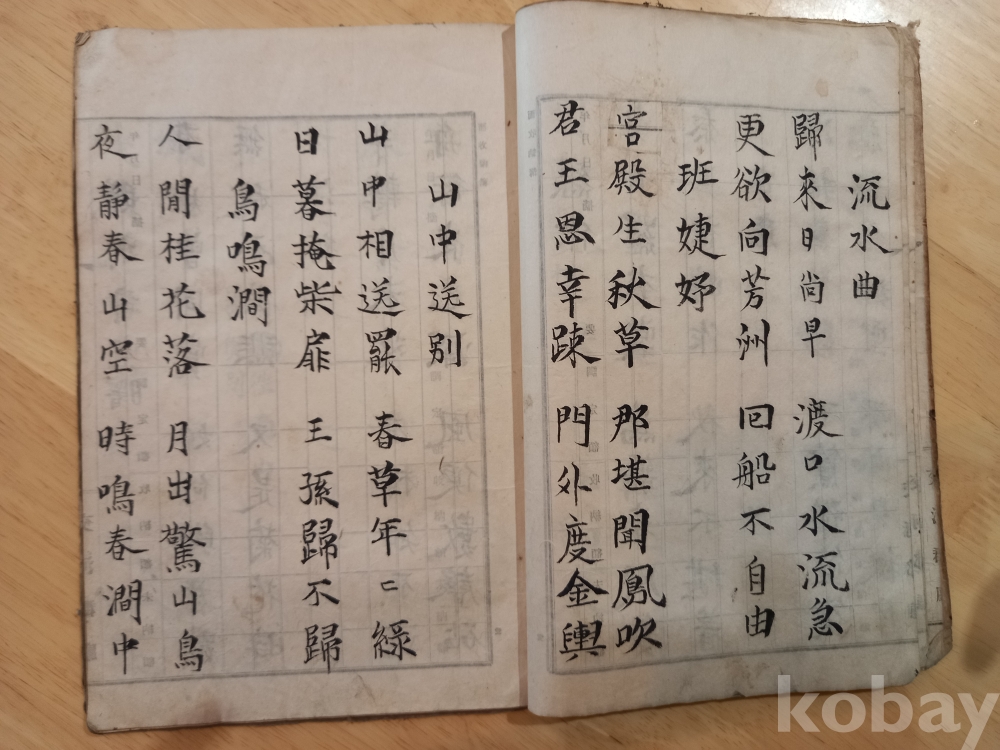 流水曲
歸來日尚早 渡口水流急
更欲向芳洲 回船不自由
班婕妤
宮殿生秋草 那堪聞鳳吹
君王恩幸踈 門外度金輿
山中送別
山中相送罷 春草年〻綠
日暮掩柴扉 王孫歸不歸
鳥鳴澗
人閒桂花落 月出驚山鳥
夜靜春山空 時鳴春澗中
kobay